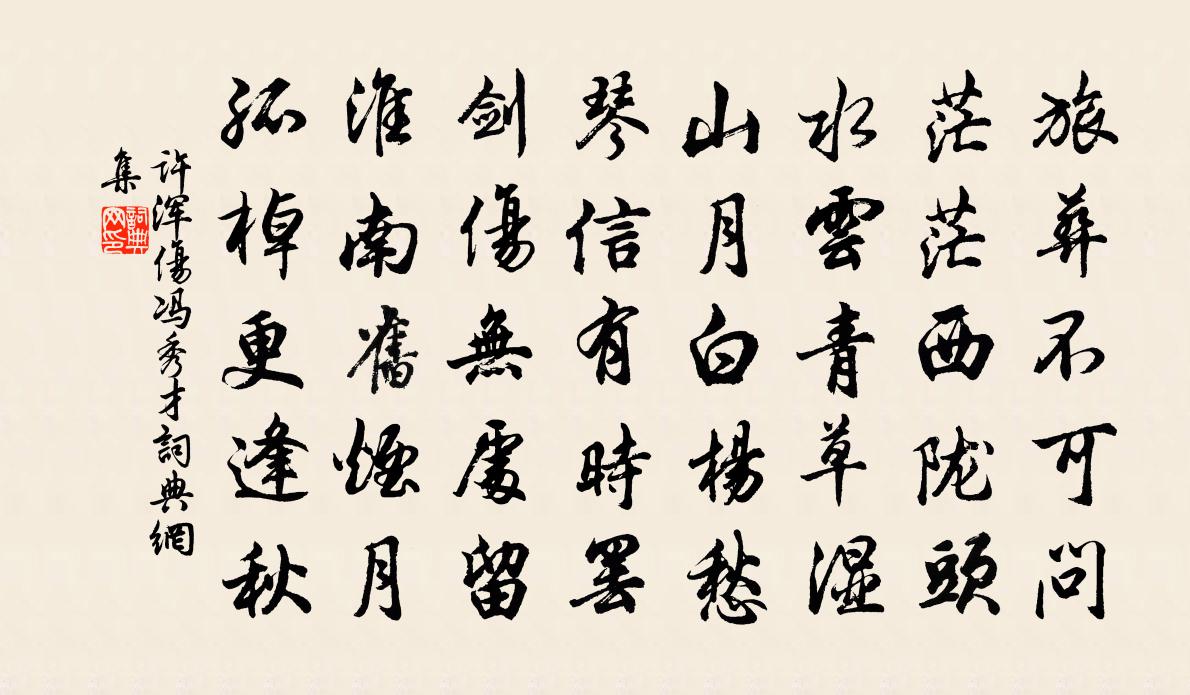 旅葬不可問
茫茫西陇頭
水雲青草湿
山月白楊愁
琴信有時罢
劍傷無處留
淮南舊煙月
孤棹更逢秋
许浑傷冯秀才詞典網
集
詞典网印